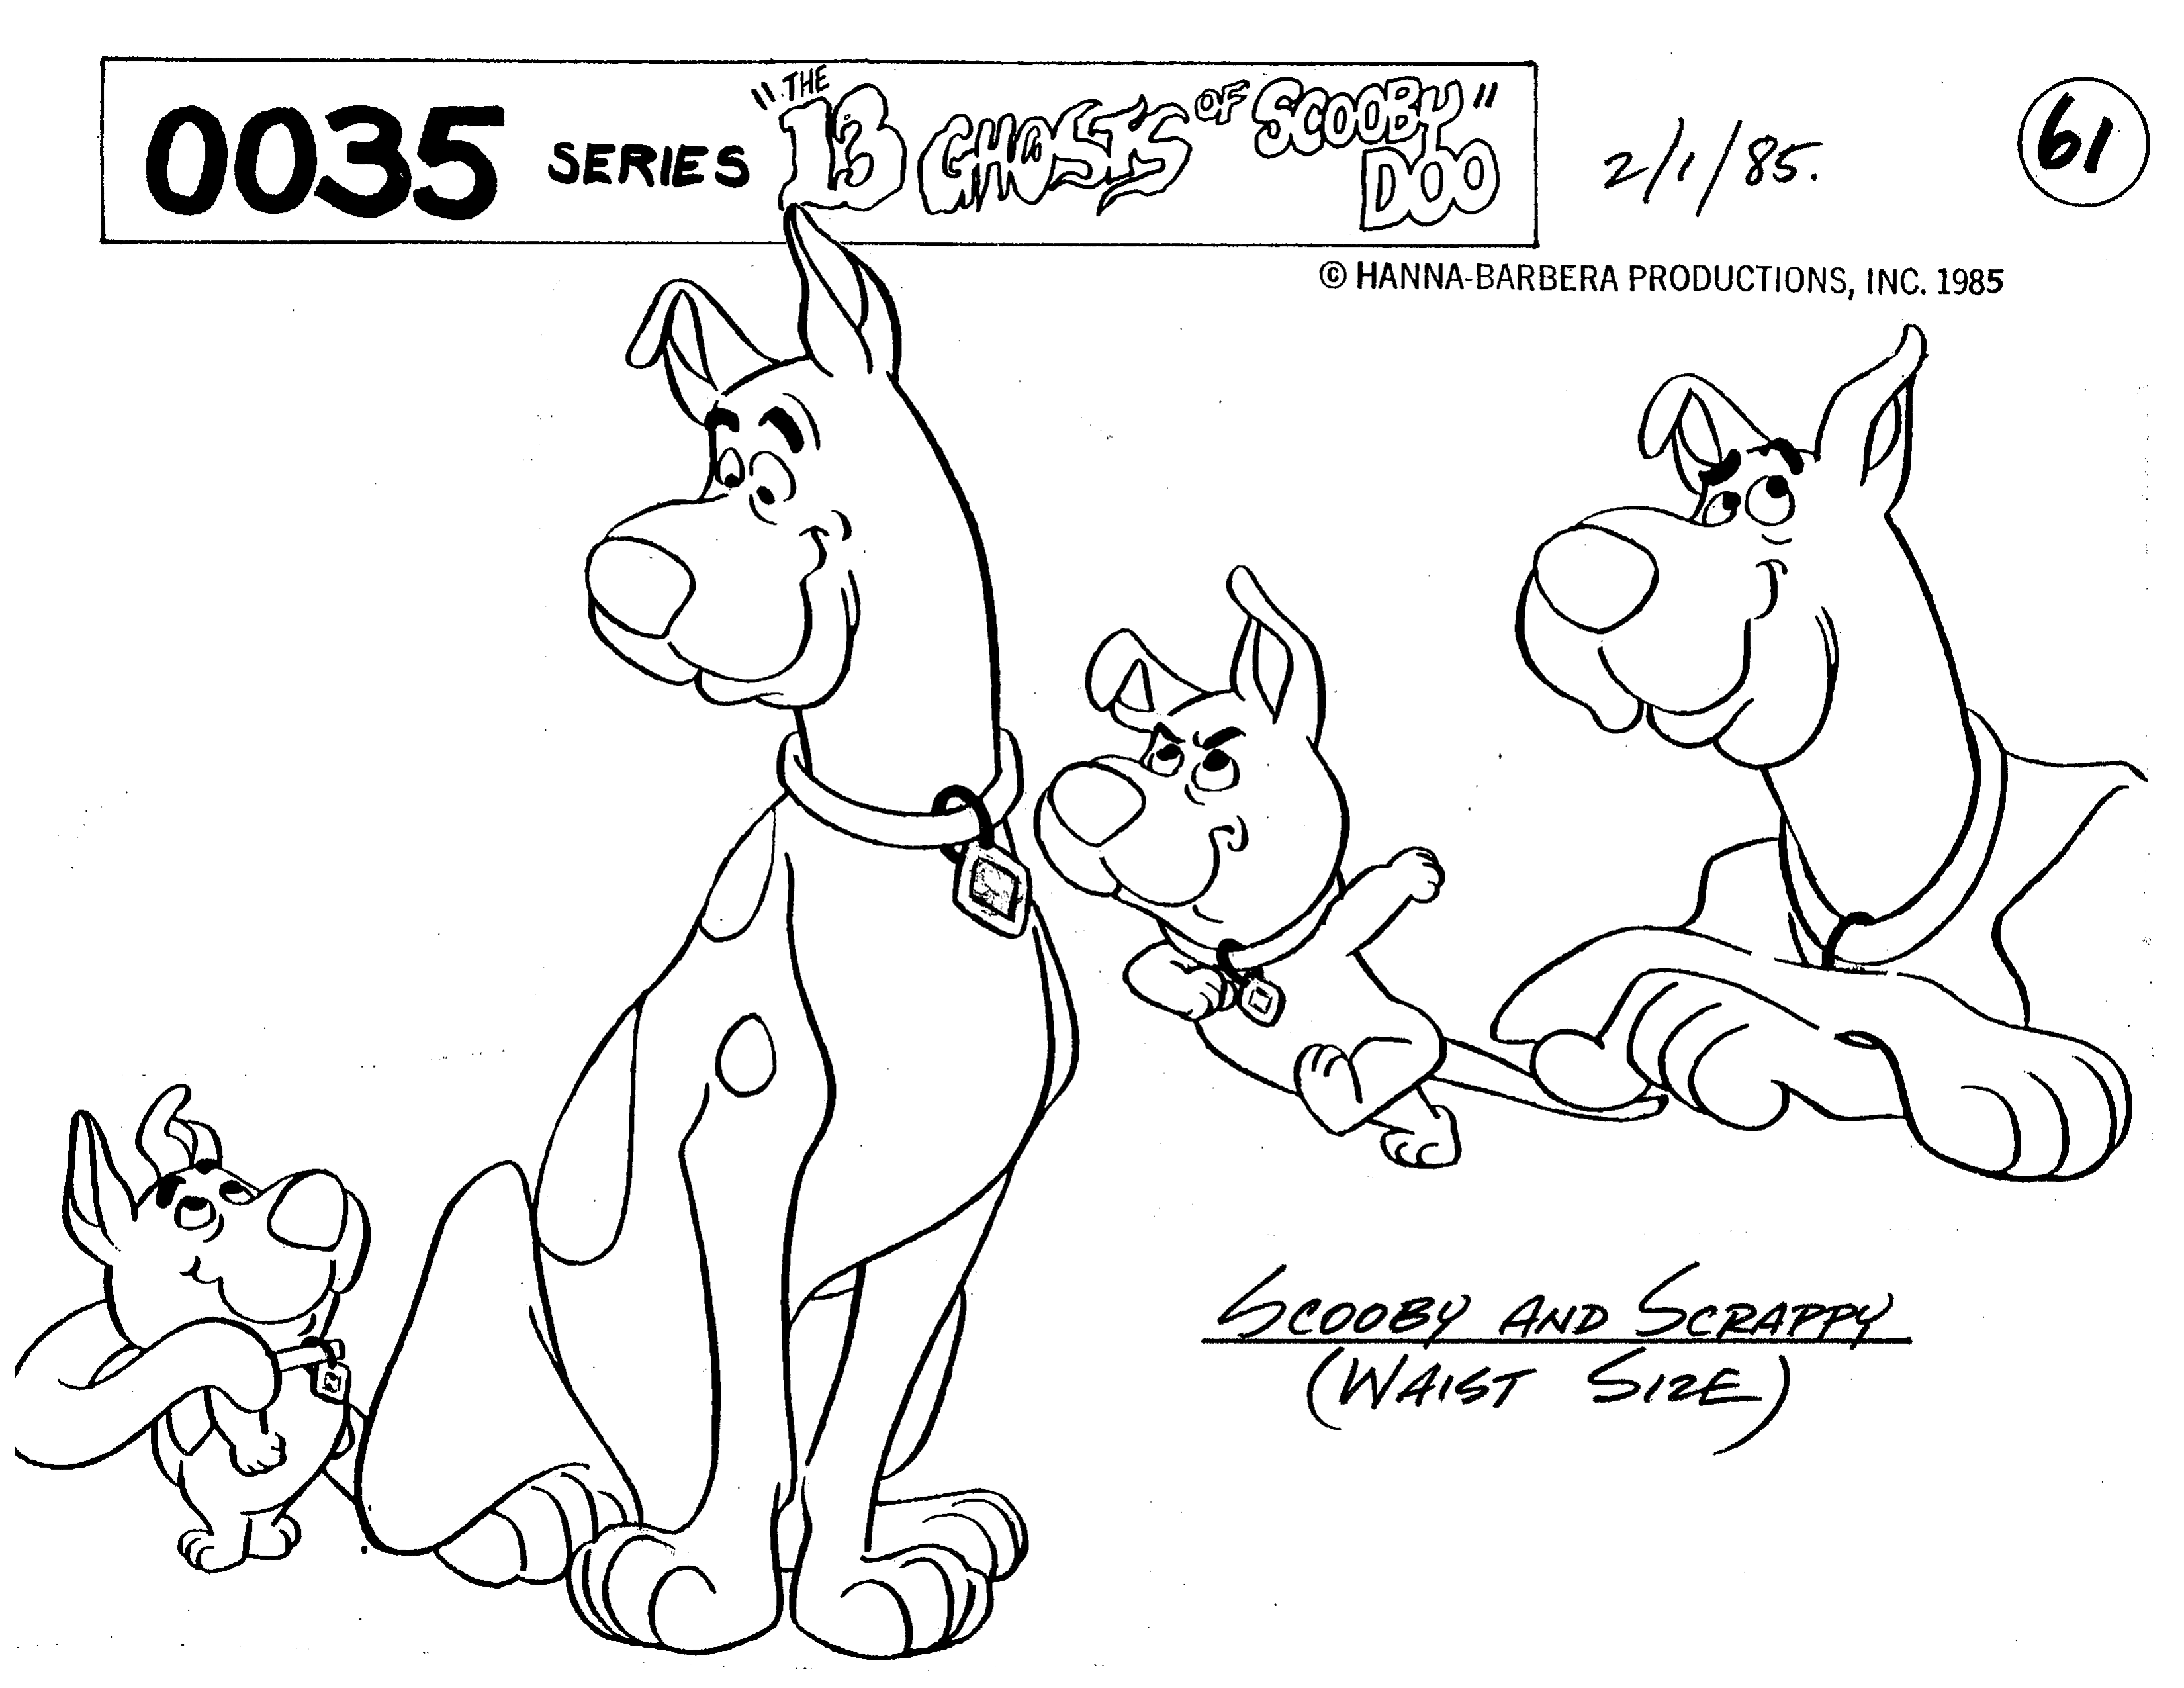 0035 SERIES "THE 13 GHOSTS OF SCOOBY DOO" 2/1/85. 61
© HANNA-BARBERA PRODUCTIONS, INC. 1985
SCOOBY AND SCRAPPY
(WAIST SIZE)